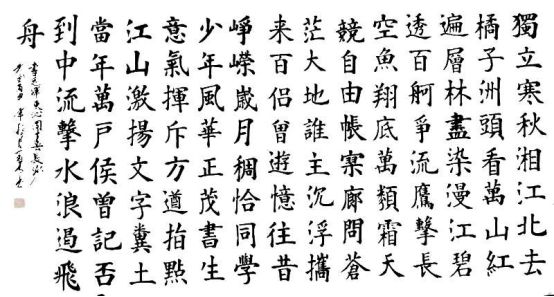 獨立寒秋湘江北去
橘子洲頭看萬山紅
遍層林盡染漫江碧
透百舸爭流鷹擊長
空魚翔底萬類霜天
競自由悵寥廓問蒼
茫大地誰主沉浮攜
来百侶曾遊憶往昔
崢嶸歲月稠恰同學
少年風華正茂書生
意氣揮斥方遒指點
江山激揚文字糞土
當年萬戶侯曾記否
到中流擊水浪遏飛
舟